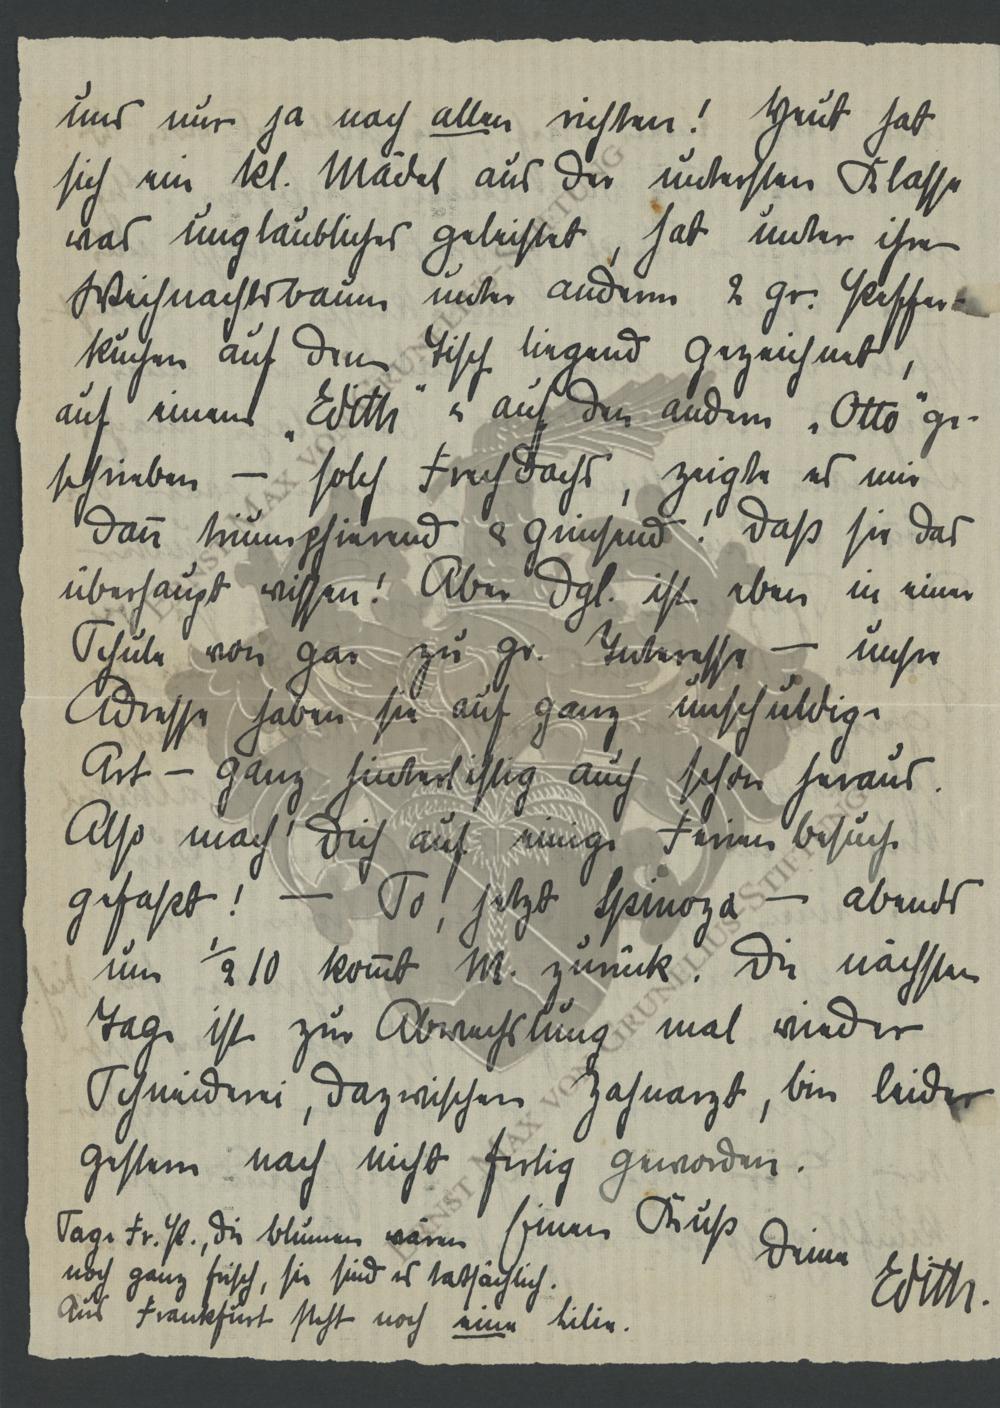 uns nur ja nach allen richten! Heut hat
sich ein kl. Mädel aus der untersten Klasse
was unglaubliches geleistet, hat unter ihren
Weihnachtsbaum unter anderm 2 gr. Pfeffer-
kuchen auf dem Tisch liegend gezeichnet,
auf einem „Edith" & auf den andern „Otto" ge-
schrieben — solch Frechdachs, zeigte es mir
dan̅ triumphierend & grinsend! Daß sie das
überhaupt wissen! Aber dgl. ist eben in einer
Schule von gar zu gr. Interesse — unsre
Adresse haben sie auf ganz unschuldige
Art — ganz hinterlistig auch schon heraus.
Also mach' Dich auf einige Ferienbesuche
gefaßt! — So, jetzt Spinoza — abends
um ½10 kom̅t M. zurück. Die nächsten
Tage ist zur Abwechslung mal wieder
Schneiderei, dazwischen Zahnarzt, bin leider
gestern noch nicht fertig geworden.
Einen Kuß Deine Edith.
Sage Fr. P., die Blumen wären
noch ganz frisch, sie sind es tatsächlich.
Aus Frankfurt steht noch eine Lilie.
ERNST MAX VON GRUNELIUS-STIFTUNG
ERNST MAX VON GRUNELIUS-STIFTUNG